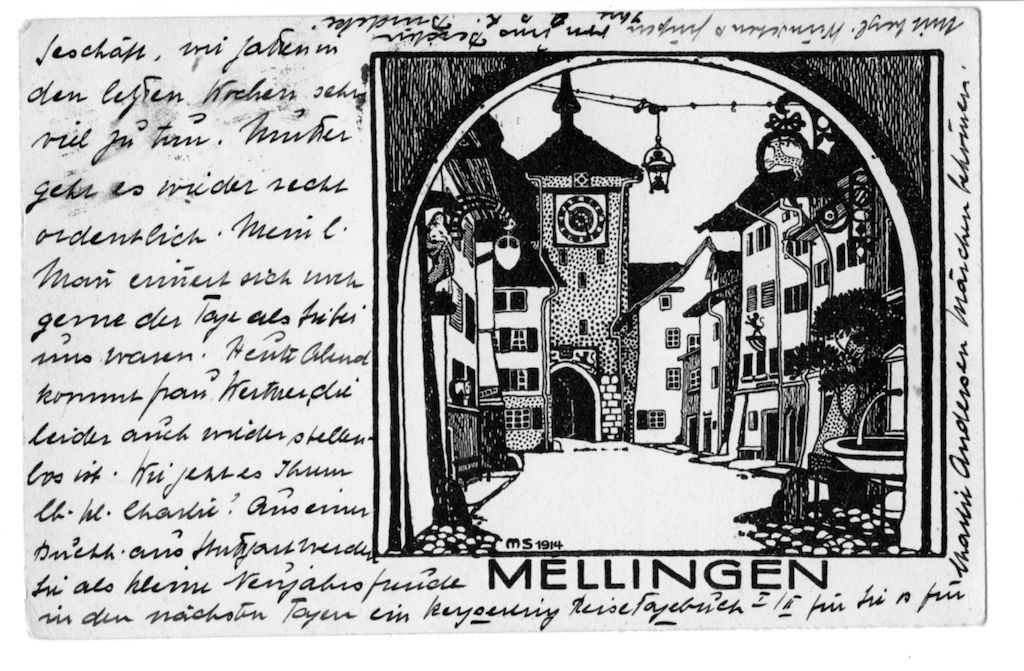 Geschäft, wir hatten in
den letzten Wochen sehr
viel zu tun. Mutter
geht es wieder recht
ordentlich. Mein l.
Mann erinnert sich noch
gerne der Tage als Sie bei
uns waren. Heute Abend
kommt Frau die
leider auch wieder stellen-
los ist. Wie geht es Ihrem
lb. kl. Charlie? Aus einer
Buchh. aus Stuttgart werden
Sie als kleine Neujahrsfreude
in den nächsten Tagen ein Keyserling Reisetagebuch I/II für Sie & für
Charlie Andersen Märchen bekommen.
Mit herzl. Wünschen &
MS 1914
MELLINGEN